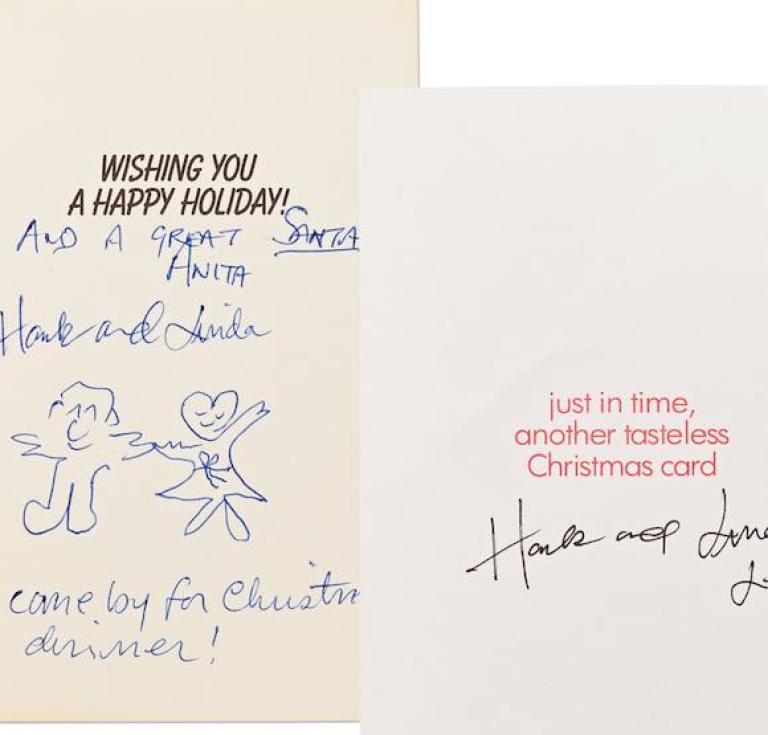 WISHING YOU
A HAPPY HOLIDAY!
AND A GREAT SANTA
ANITA
Hank and Linda
come by for Christm
dinner!
just in time,
another tasteless
Christmas card
Hank and Lin